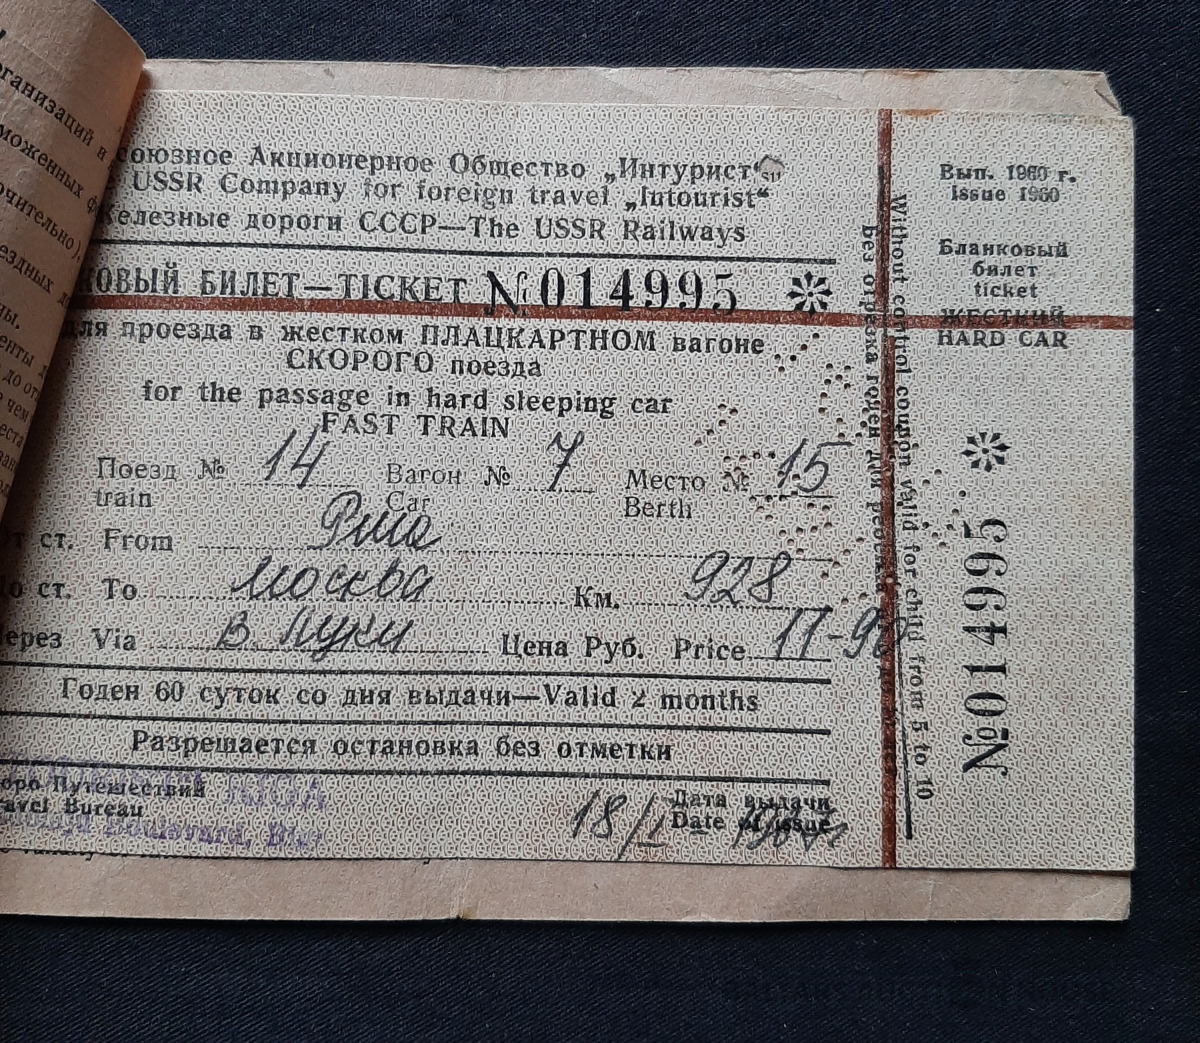 рганизаций и
моженных ф
очительно),
ездных д
ны.
енты д
до от
чем
еста
союзное Акционерное Общество „Интурист“
USSR Company for foreign travel „Intourist“
Железные дороги СССР—The USSR Railways
КОВЫЙ БИЛЕТ—TICKET № 014995
для проезда в жестком ПЛАЦКАРТНОМ вагоне
СКОРОГО поезда
for the passage in hard sleeping car
FAST TRAIN
Поезд № 14 Вагон № 7 Место № 15
train Car Berth
От ст. From Рига
До ст. To Москва Км. 928
Через Via В. Луки Цена Руб. Price 17-90
Годен 60 суток со дня выдачи—Valid 2 months
Разрешается остановка без отметки
RIGA
Бюро Путешествий
Travel Bureau
Boulevard,
18/I Дата выдачи
Date of issue
Без отрезка годен для ребенка
Without control coupon valid for child from 5 to 10
Вып. 1960 г.
Issue 1960
Бланковый
билет
ticket
ЖЕСТКИЙ
HARD CAR
№ 014995